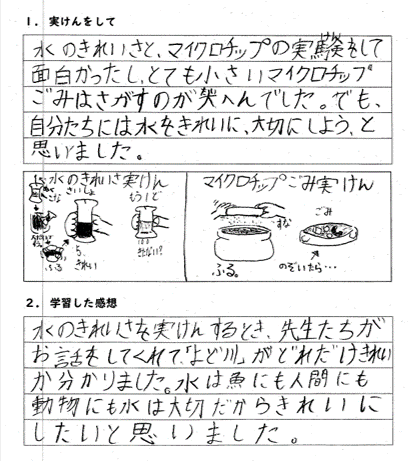 1. 実けんをして
水のきれいさと、マイクロチップの実験をして
面白かったし、とても小さいマイクロチップ
ごみはさがすのが大へんでした。でも、
自分たちには水をきれいに、大切にしよう、と
思いました。
水のきれいさ実けん
さいしょ
もう1ど
きれい
きたない?
ふる
マイクロチップごみ実けん
すな
ごみ
ふる。
のぞいたら…
2. 学習した感想
水のきれいさを実けんするとき、先生たちが
お話をしてくれて、「よど川」がどれだけきれい
か分かりました。水は魚にも人間にも
動物にも水は大切だからきれいに
したいと思いました。